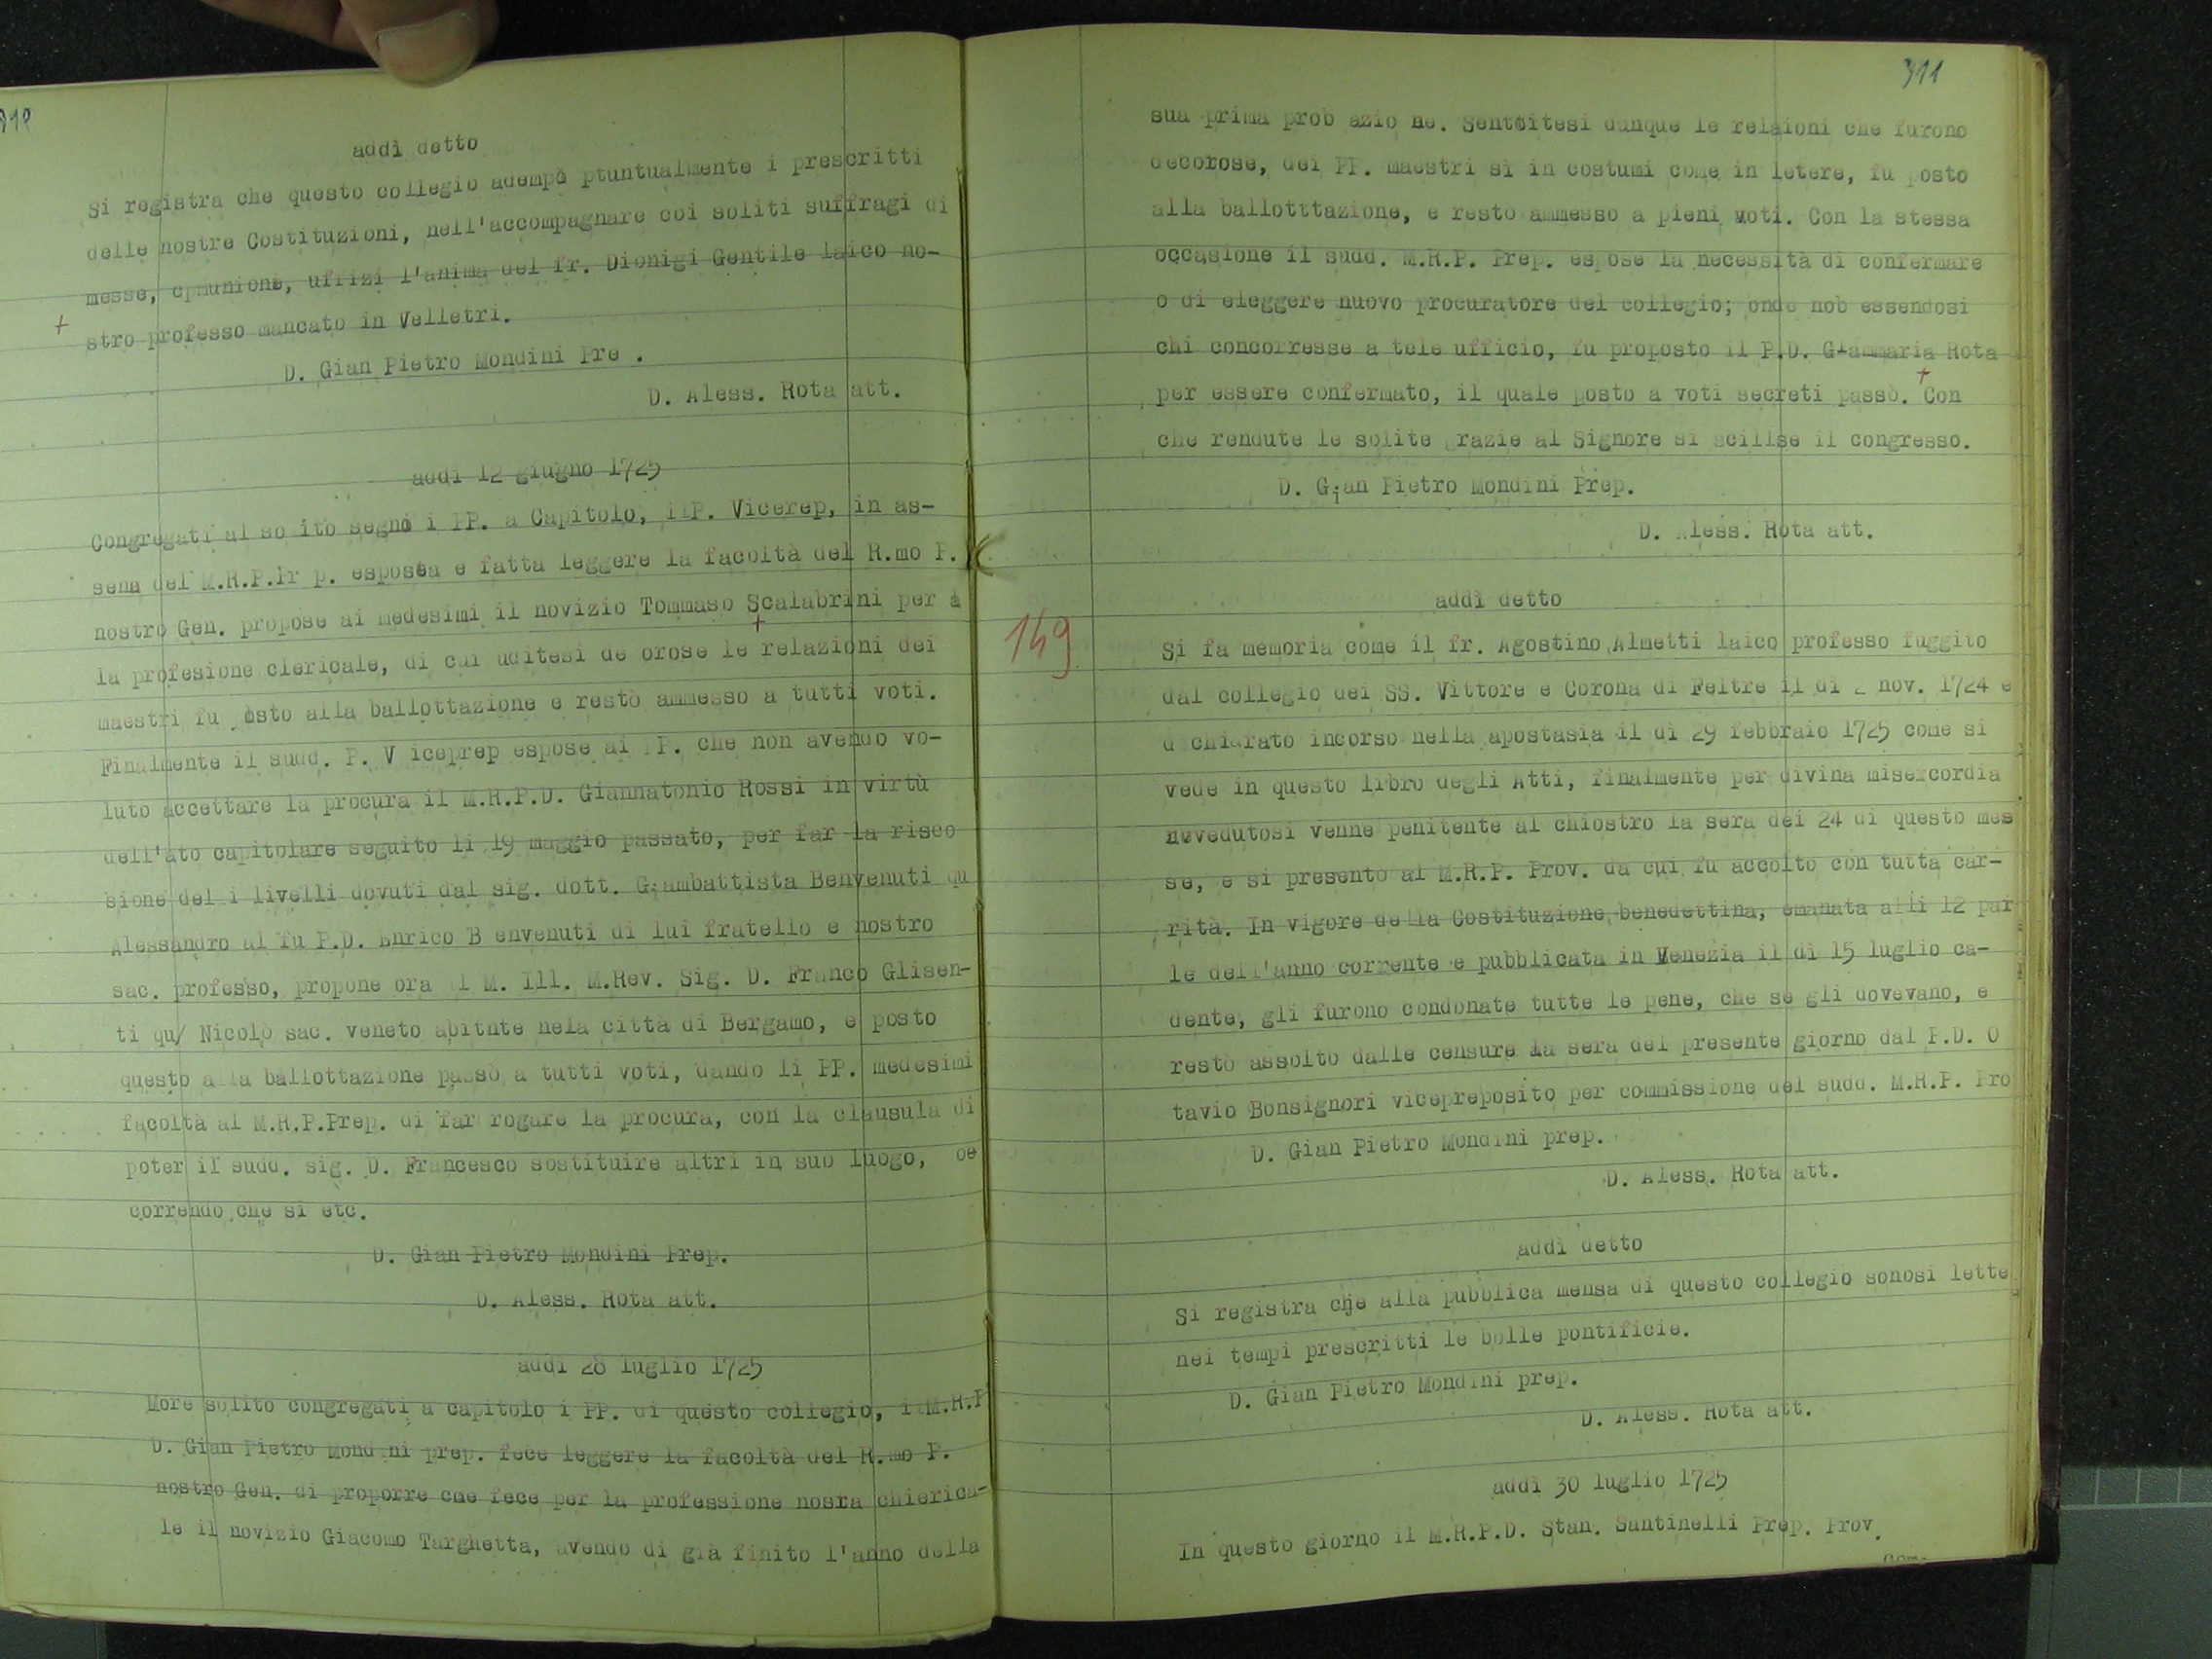 addì detto
Si registra che questo collegio adempì ptuntualmente i prescritti
delle nostre Costituzioni, nell'accompagnare coi soliti suffragi di
messe, cpmunioni, uffizi l'anima del fr. Dionigi Gentile laico no-
+ stro professo mancato in Velletri.
D. Gian Pietro Mondini Pre .
D. Aless. Rota att.
addì 12 giugno 1725
Congregati al so ito segno i PP. a Capitolo, il P. Vicerep, in as-
sena del M.R.P.Pr p. esposta e fatta leggere la facoltà del R.mo P.
nostro Gen. propose ai medesimi il novizio Tommaso Scalabrini per
la profesione clericale, di cui uditesi de orose le relazioni dei
maestri fu osto alla ballottazione e restò ammesso a tutti voti.
Finalmente il sudd. P. V iceprep espose ai PP. che non avendo vo-
luto accettare la procura il M.R.P.D. Giannatonio Rossi in virtù
dell'ato capitolare seguito li 19 maggio passato, per far la risco
sione del i livelli dovuti dal sig. dott. Giambattista Benvenuti qu
Alessandro al fu P.D. Enrico B envenuti di lui fratello e nostro
sac. professo, propone ora il M. Ill. M.Rev. Sig. D. Franco Glisen-
ti qu/ Nicolò sac. veneto abitnte nela città di Bergamo, e posto
questo alla ballottazione passò a tutti voti, dando li PP. medesimi
facoltà al M.R.P.Prep. di far rogare la procura, con la clausula di
poter il sudd. sig. D. Francesco sostituire altri in suo luogo, oc
correndo che si etc.
D. Gian Pietro Mondini Prep.
D. Aless. Rota att.
addì 28 luglio 1725
More solito congregati a capitolo i PP. di questo collegio, i M.R.P
D. Gian Pietro Mond ni prep. fece leggere la facoltà del R.mo P.
nostro Gen. di proporre che fece per la professione nosra chierica-
le il novizio Giacomo Targhetta, avendo di già finito l'anno della
311
sua prima prob azio ne. Sentoitesi dunque le relaioni che furono
decorose, dei PP. maestri sì in costumi come in letere, fu posto
alla ballotttazione, e restò ammesso a pieni voti. Con la stessa
occasione il sudd. M.R.P. Prep. espose la necessità di confermare
o di eleggere nuovo procuratore del collegio; onde nob essendosi
chi concorresse a tele ufficio, fu proposto il P.D. Giammaria Rota
per essere confermato, il quale posto a voti secreti passò. Con
che rendute le solite grazie al Signore si scillse il congresso.
D. Gian Pietro Mondini Prep.
D. Aless. Rota att.
addì detto
149
Si fa memoria come il fr. Agostino Almetti laico professo fuggito
dal collegio dei SS. Vittore e Corona di Feltre il dì nov. 1724 e
d chiarato incorso nella apostasia il dì 29 febbraio 1725 come si
vede in questo libro degli Atti, finalmente per divina misercordia
ravvedutosi venne penitente al chiostro la sera dei 24 di questo mes
se, e si presentò al M.R.P. Prov. da cui fu accolto con tutta car-
rità. In vigore della Costituzione benedettina, emanata alli 12 par
le dell'anno corrente e pubblicata in Venezia il dì 15 luglio ca-
dente, gli furono condonate tutte le pene, che se gli dovevano, e
restò assolto dalle censure la sera del presente giorno dal P.D. O
tavio Bonsignori vicepreposito per commissione del sudd. M.R.P. Pro
D. Gian Pietro Mondini prep.
D. Aless. Rota att.
addì detto
Si registra che alla pubblica mensa di questo collegio sonosi lette
nei tempi prescritti le bolle pontificie.
D. Gian Pietro Mondini prep.
D. Aless. Rota att.
addì 30 luglio 1725
In questo giorno il M.R.P.D. Stan. Santinelli Prep. Prov.